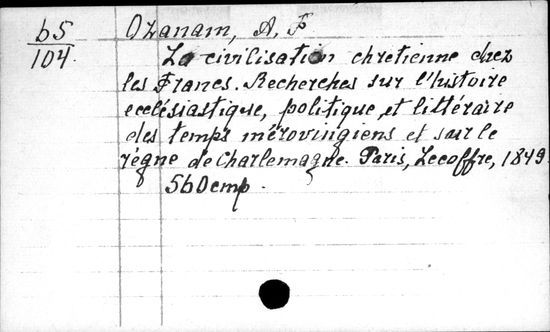 65
104.
Ozanam, A. F
La civilisation chretienne chez
les Francs. Recherches sur l'histoire
ecclésiastique, politique, et littéraire
des temps mérovingiens et sur le
règne de Charlemagne. Paris, Lecoffre, 1849